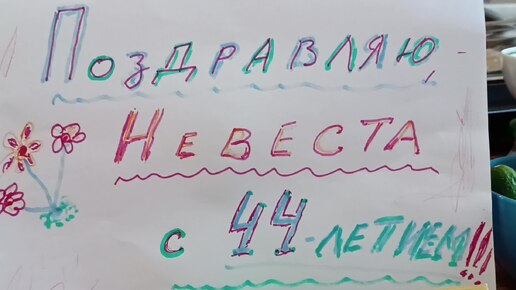 Поздравляю
Невеста
с 44-летием!!!